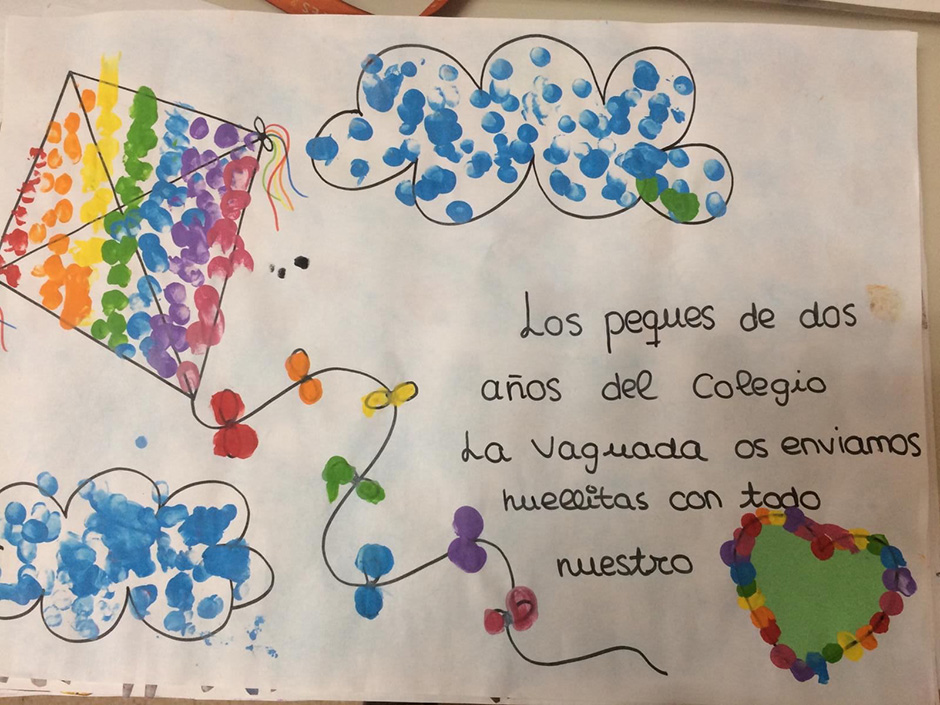 Los peques de dos
años del Colegio
La Vaguada os enviamos
huellitas con todo
nuestro